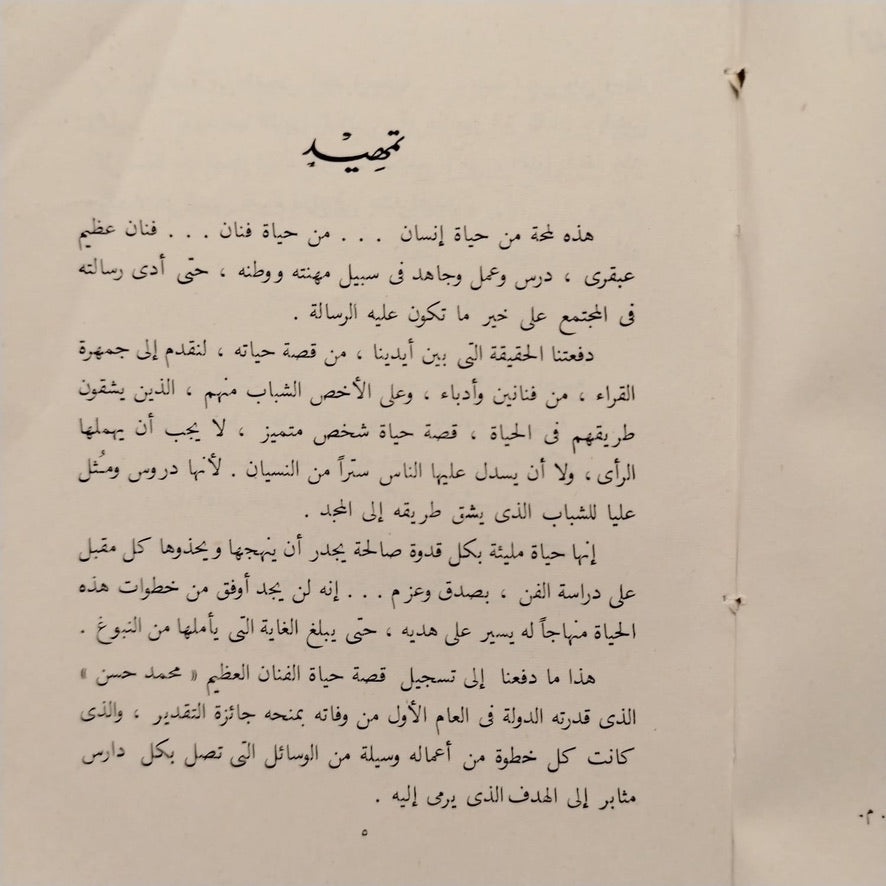 تمهيد
هذه لمحة من حياة إنسان . . . من حياة فنان . . . فنان عظيم
عبقرى ، درس وعمل وجاهد فى سبيل مهنته ووطنه ، حتى أدى رسالته
فى المجتمع على خير ما تكون عليه الرسالة .
دفعتنا الحقيقة التى بين أيدينا ، من قصة حياته ، لنقدم إلى جمهرة
القراء ، من فنانين وأدباء ، وعلى الأخص الشباب منهم ، الذين يشقون
طريقهم فى الحياة ، قصة حياة شخص متميز ، لا يجب أن يهملها
الرأى ، ولا أن يسدل عليها الناس ستراً من النسيان . لأنها دروس ومُثل
عليا للشباب الذى يشق طريقه إلى المجد .
إنها حياة مليئة بكل قدوة صالحة يجدر أن ينهجها ويحذوها كل مقبل
على دراسة الفن ، بصدق وعزم . . . إنه لن يجد أوفق من خطوات هذه
الحياة منهاجاً له يسير على هديه ، حتى يبلغ الغاية التى يأملها من النبوغ .
هذا ما دفعنا إلى تسجيل قصة حياة الفنان العظيم « محمد حسن »
الذى قدرته الدولة فى العام الأول من وفاته بمنحه جائزة التقدير ، والذى
كانت كل خطوة من أعماله وسيلة من الوسائل التى تصل بكل دارس
مثابر إلى الهدف الذى يرمى إليه .
٥
. م.